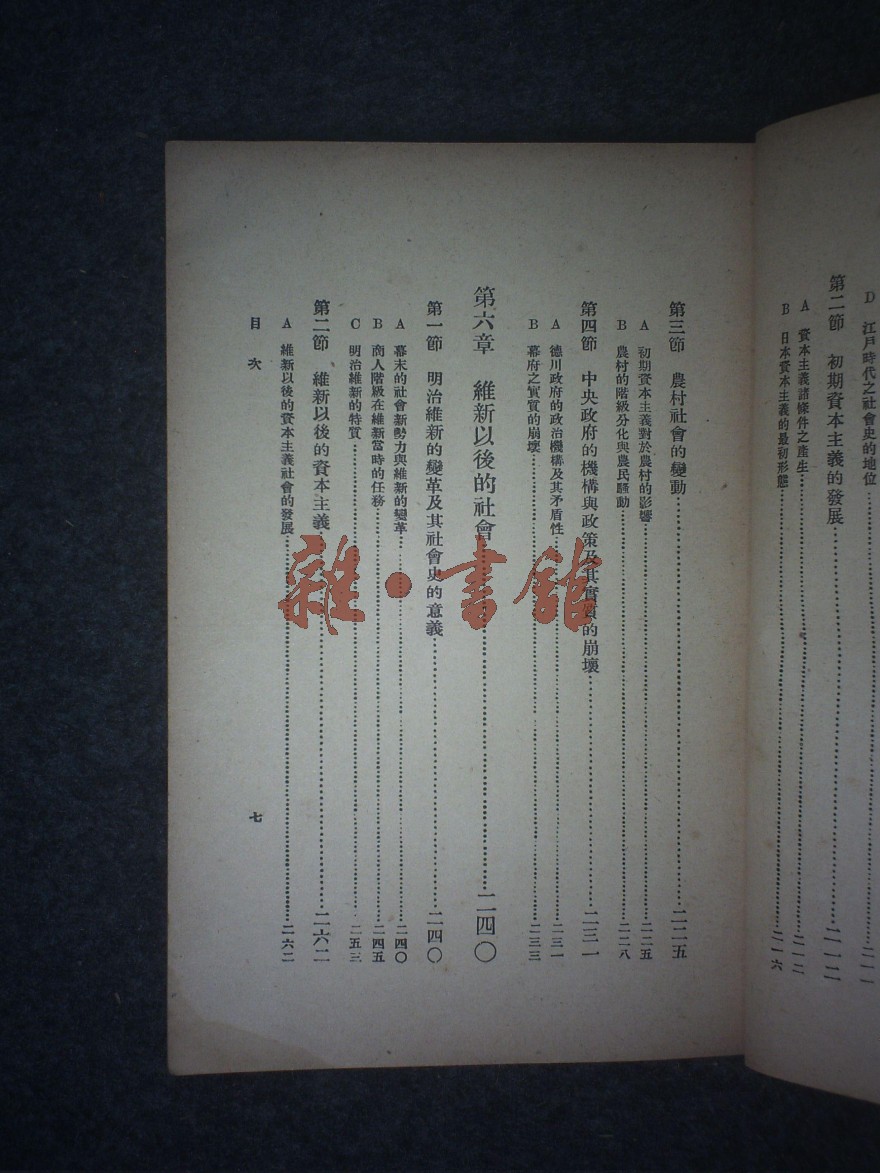 D 江戸時代之社會史的地位……二一一
第二節 初期資本主義的發展……二一二
A 資本主義諸條件之產生……二一二
B 日本資本主義的最初形態……二一六
第三節 農村社會的變動……二二五
A 初期資本主義對於農村的影響……二二五
B 農村的階級分化與農民騷動……二二八
第四節 中央政府的機構與政策及其實質的崩壞……二三一
A 德川政府的政治機構及其矛盾性……二三一
B 幕府之實質的崩壞……二三三
第六章 維新以後的社會……二四〇
第一節 明治維新的變革及其社會史的意義……二四〇
A 幕末的社會新勢力與維新的變革……二四〇
B 商人階級在維新當時的任務……二四五
C 明治維新的特質……二五三
第二節 維新以後的資本主義……二六二
A 維新以後的資本主義社會的發展……二六二
目次 七
雜·書館